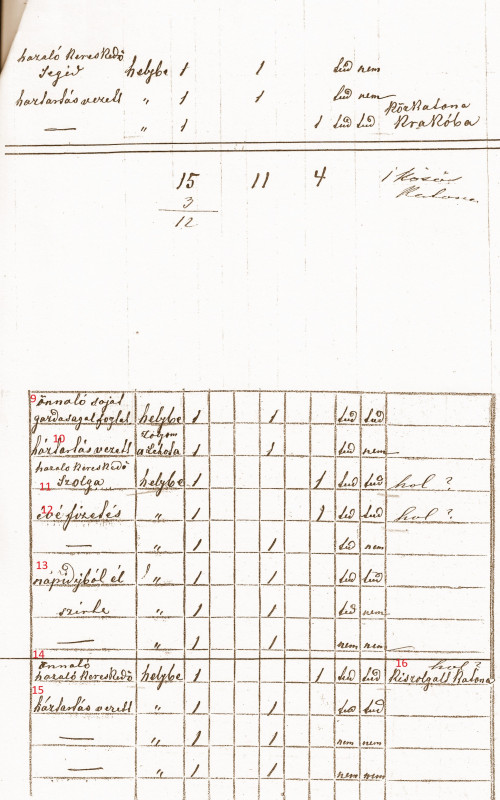 hazaló Kereskedő
Segéd helybe 1 1 tud nem
háztartás vezett „ 1 1 tud nem
— „ 1 1 tud tud Közkatona
Krakóba
15 11 4 1 Közös
3 Katona
12
9 önnaló saját
gazdaságat foglal helybe 1 1 tud tud
10 háztartás vezett a Lehota 1 1 tud nem
hazaló Kereskedő
11 Szolga helybe 1 1 tud tud hol ?
12 évé fizetés „ 1 1 tud tud hol ?
— „ 1 1 tud nem
13
nápidijból él „ 1 1 tud tud
szinte „ 1 1 tud nem
— „ 1 1 nem nem
14 önnaló 16 hol ?
hazaló Kereskedő helybe 1 1 tud tud Kiszolgált Katona
15
háztartás vezett „ 1 1 tud tud
— „ 1 1 nem nem
— „ 1 1 nem nem